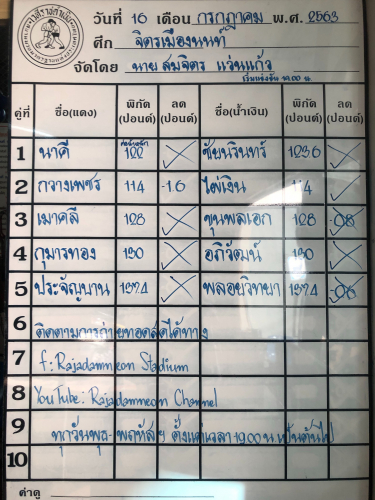 วันที่ 16 เดือน กรกฎาคม พ.ศ. 2563
ศึก จิตรเมืองนนท์
จัดโดย นายสมจิตร แว่นแก้ว
คู่ที่ ชื่อ(แดง) พิกัด (ปอนด์) ลด (ปอนด์) ชื่อ(น้ำเงิน) พิกัด (ปอนด์) ลด (ปอนด์)
1 นาคี 122 ชัยนรินทร์ 1236
2 กวางเพชร 114 -1.6 ไผ่เงิน 114
3 เมาคลี 128 ขุนพลเอก 128 -0.8
4 กุมารทอง 130 อภิวัฒน์ 130
5 ประจัญบาน 1374 พลอยวิทยา 1374
6 ติดตามการถ่ายทอดสดได้ทาง
7 f: Rajadamneon Stadium
8 YouTube: Rajadamneon Channel
9 ทุกวันพุธ - พฤหัสฯ ตั้งแต่เวลา 19.00 น. เป็นต้นไป
10
ค่าดู